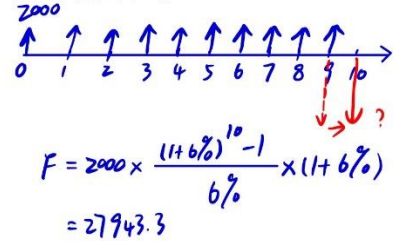 2000
0 1 2 3 4 5 6 7 8 9 10
?
F = 2000 × ((1+6%)^10 - 1)/6% × (1+6%)
= 27943.3